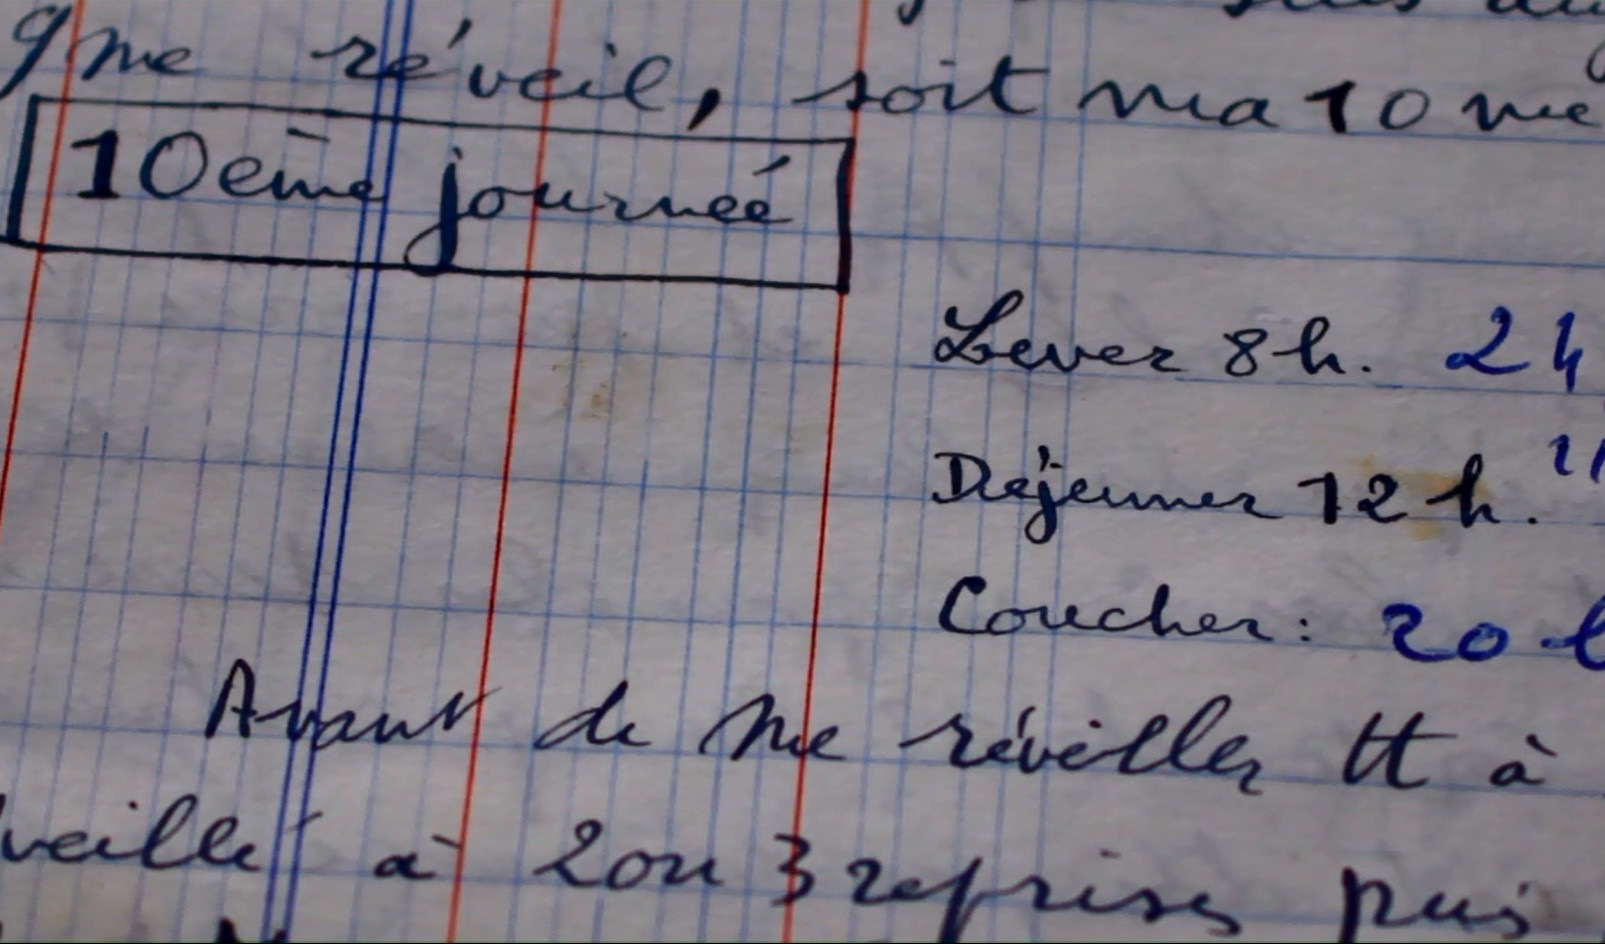 9me réveil, soit ma 10me
10ème journéé
Lever 8h. 24
Déjeuner 12 h.
Coucher: 20
Avant de me réveiller tt à
veillé à 2 ou 3 reprises puis